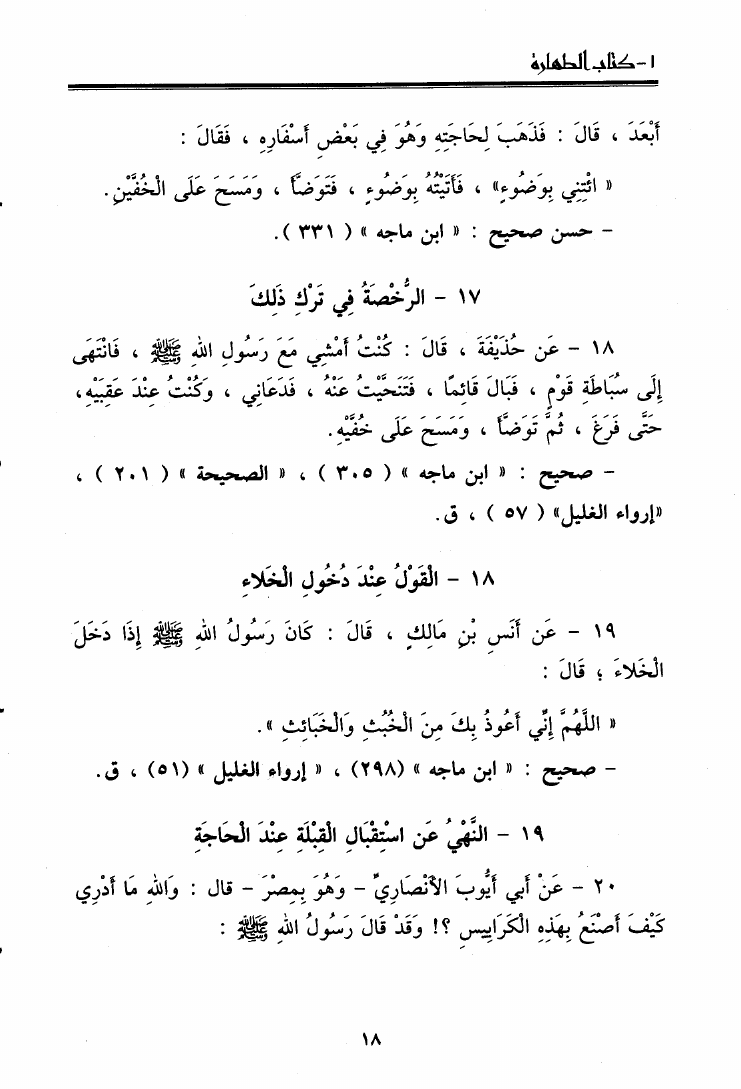 ١ - كتاب الطهارة
أَبْعَدَ ، قَالَ : فَذَهَبَ لِحَاجَتِهِ وَهُوَ فِي بَعْضِ أَسْفَارِهِ ، فَقَالَ :
« ائْتِنِي بِوَضُوءٍ» ، فَأَتَيْتُهُ بِوَضُوءٍ ، فَتَوَضَّأَ ، وَمَسَحَ عَلَى الْخُفَّيْنِ.
– حسن صحيح : « ابن ماجه » ( ٣٣١ ).
١٧ – الرُّخْصَةُ فِي تَرْكِ ذَلِكَ
١٨ – عَن حُذَيْفَةَ ، قَالَ : كُنْتُ أَمْشِي مَعَ رَسُولِ اللهِ ﷺ ، فَانْتَهَى
إِلَى سُبَاطَةِ قَوْمٍ ، فَبَالَ قَائِمًا ، فَتَنَحَّيْتُ عَنْهُ ، فَدَعَانِي ، وَكُنْتُ عِنْدَ عَقِبَيْهِ،
حَتَّى فَرَغَ ، ثُمَّ تَوَضَّأَ ، وَمَسَحَ عَلَى خُفَّيْهِ.
– صحيح : « ابن ماجه » ( ٣٠٥ ) ، « الصحيحة » ( ٢٠١ ) ،
«إرواء الغليل» ( ٥٧ ) ، ق.
١٨ – الْقَوْلُ عِنْدَ دُخُولِ الْخَلَاءِ
١٩ – عَن أَنَسِ بْنِ مَالِكٍ ، قَالَ : كَانَ رَسُولُ اللهِ ﷺ إِذَا دَخَلَ
الْخَلَاءَ ؛ قَالَ :
« اللَّهُمَّ إِنِّي أَعُوذُ بِكَ مِنَ الْخُبُثِ وَالْخَبَائِثِ ».
– صحيح : « ابن ماجه » (٢٩٨) ، « إرواء الغليل » (٥١) ، ق.
١٩ – النَّهْيُ عَن اسْتِقْبَالِ الْقِبْلَةِ عِنْدَ الْحَاجَةِ
٢٠ – عَنْ أَبِي أَيُّوبَ الأَنْصَارِيِّ – وَهُوَ بِمِصْرَ – قال : وَاللهِ مَا أَدْرِي
كَيْفَ أَصْنَعُ بِهَذِهِ الْكَرَايِيسِ ؟! وَقَدْ قَالَ رَسُولُ اللهِ ﷺ :
١٨